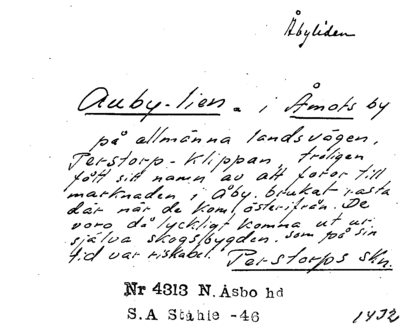 Åbyliden
Auby-lien - i Åmots by
på allmänna landsvägen,
Perstorp-Klippan, troligen
fått sitt namn av att foror till
marknaden i Åby. brukat rasta
där när de kom österifrån. De
voro då lyckligt komma ut ur
själva skogsbygden. som på sin
tid var riskabel. Perstorps skn.
Nr 4313 N. Åsbo hd
S.A Ståhle -46
1932